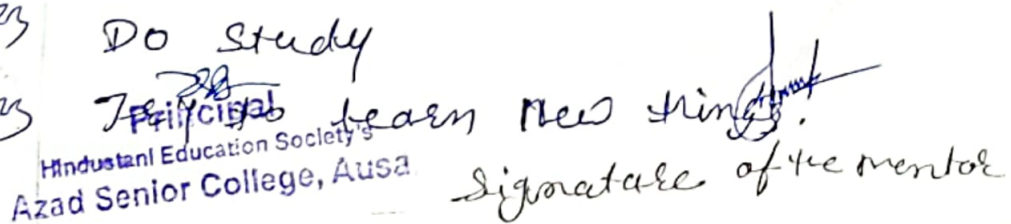 23 Do Study
23 Try to learn New thing.
Principal
Hindustani Education Society's
Azad Senior College, Ausa
Signature of the mentor